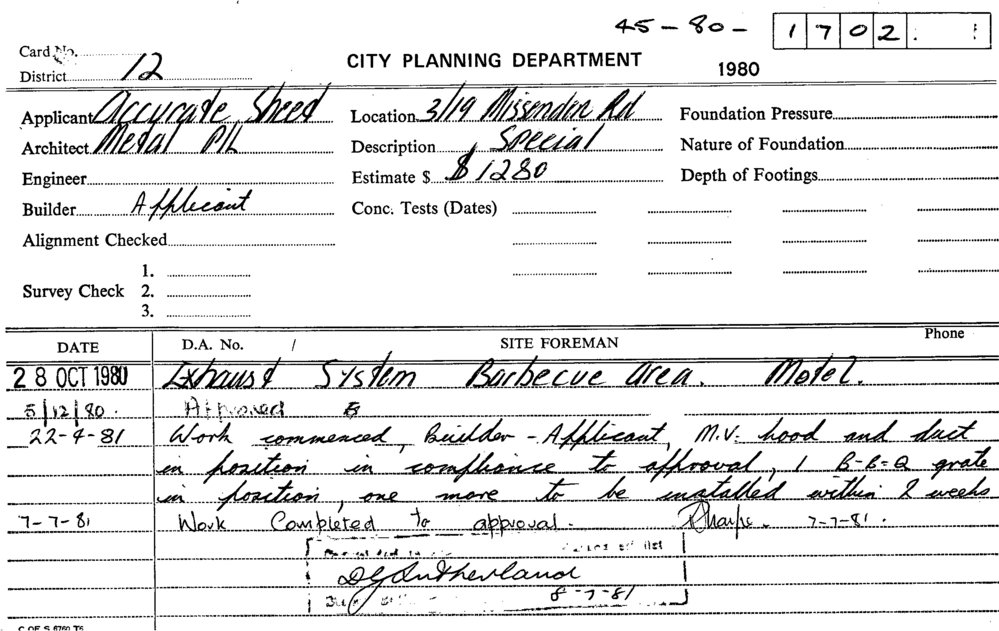 45-80- 1702
Card No.
District 12
CITY PLANNING DEPARTMENT
1980
Applicant Accurate Sheed
Location 3/19 Missenden Rd
Foundation Pressure
Architect Metal P/L
Description Special
Nature of Foundation
Engineer
Estimate $ $1280
Depth of Footings
Builder Applicant
Conc. Tests (Dates)
Alignment Checked
1.
Survey Check 2.
3.
DATE D.A. No. / SITE FOREMAN Phone
28 OCT 1980 Exhaust System Barbecue area. Motel.
5/12/80. Approved
22-4-81 Work commenced, Builder - Applicant, M.V. hood and duct
in position in compliance to approval, 1 B-B-Q grate
in position, one more to be installed within 2 weeks
7-7-81 Work Completed to approval. Sharpe. 7-7-81.
DGSutherland
8-7-81
C OF S 6760 T6